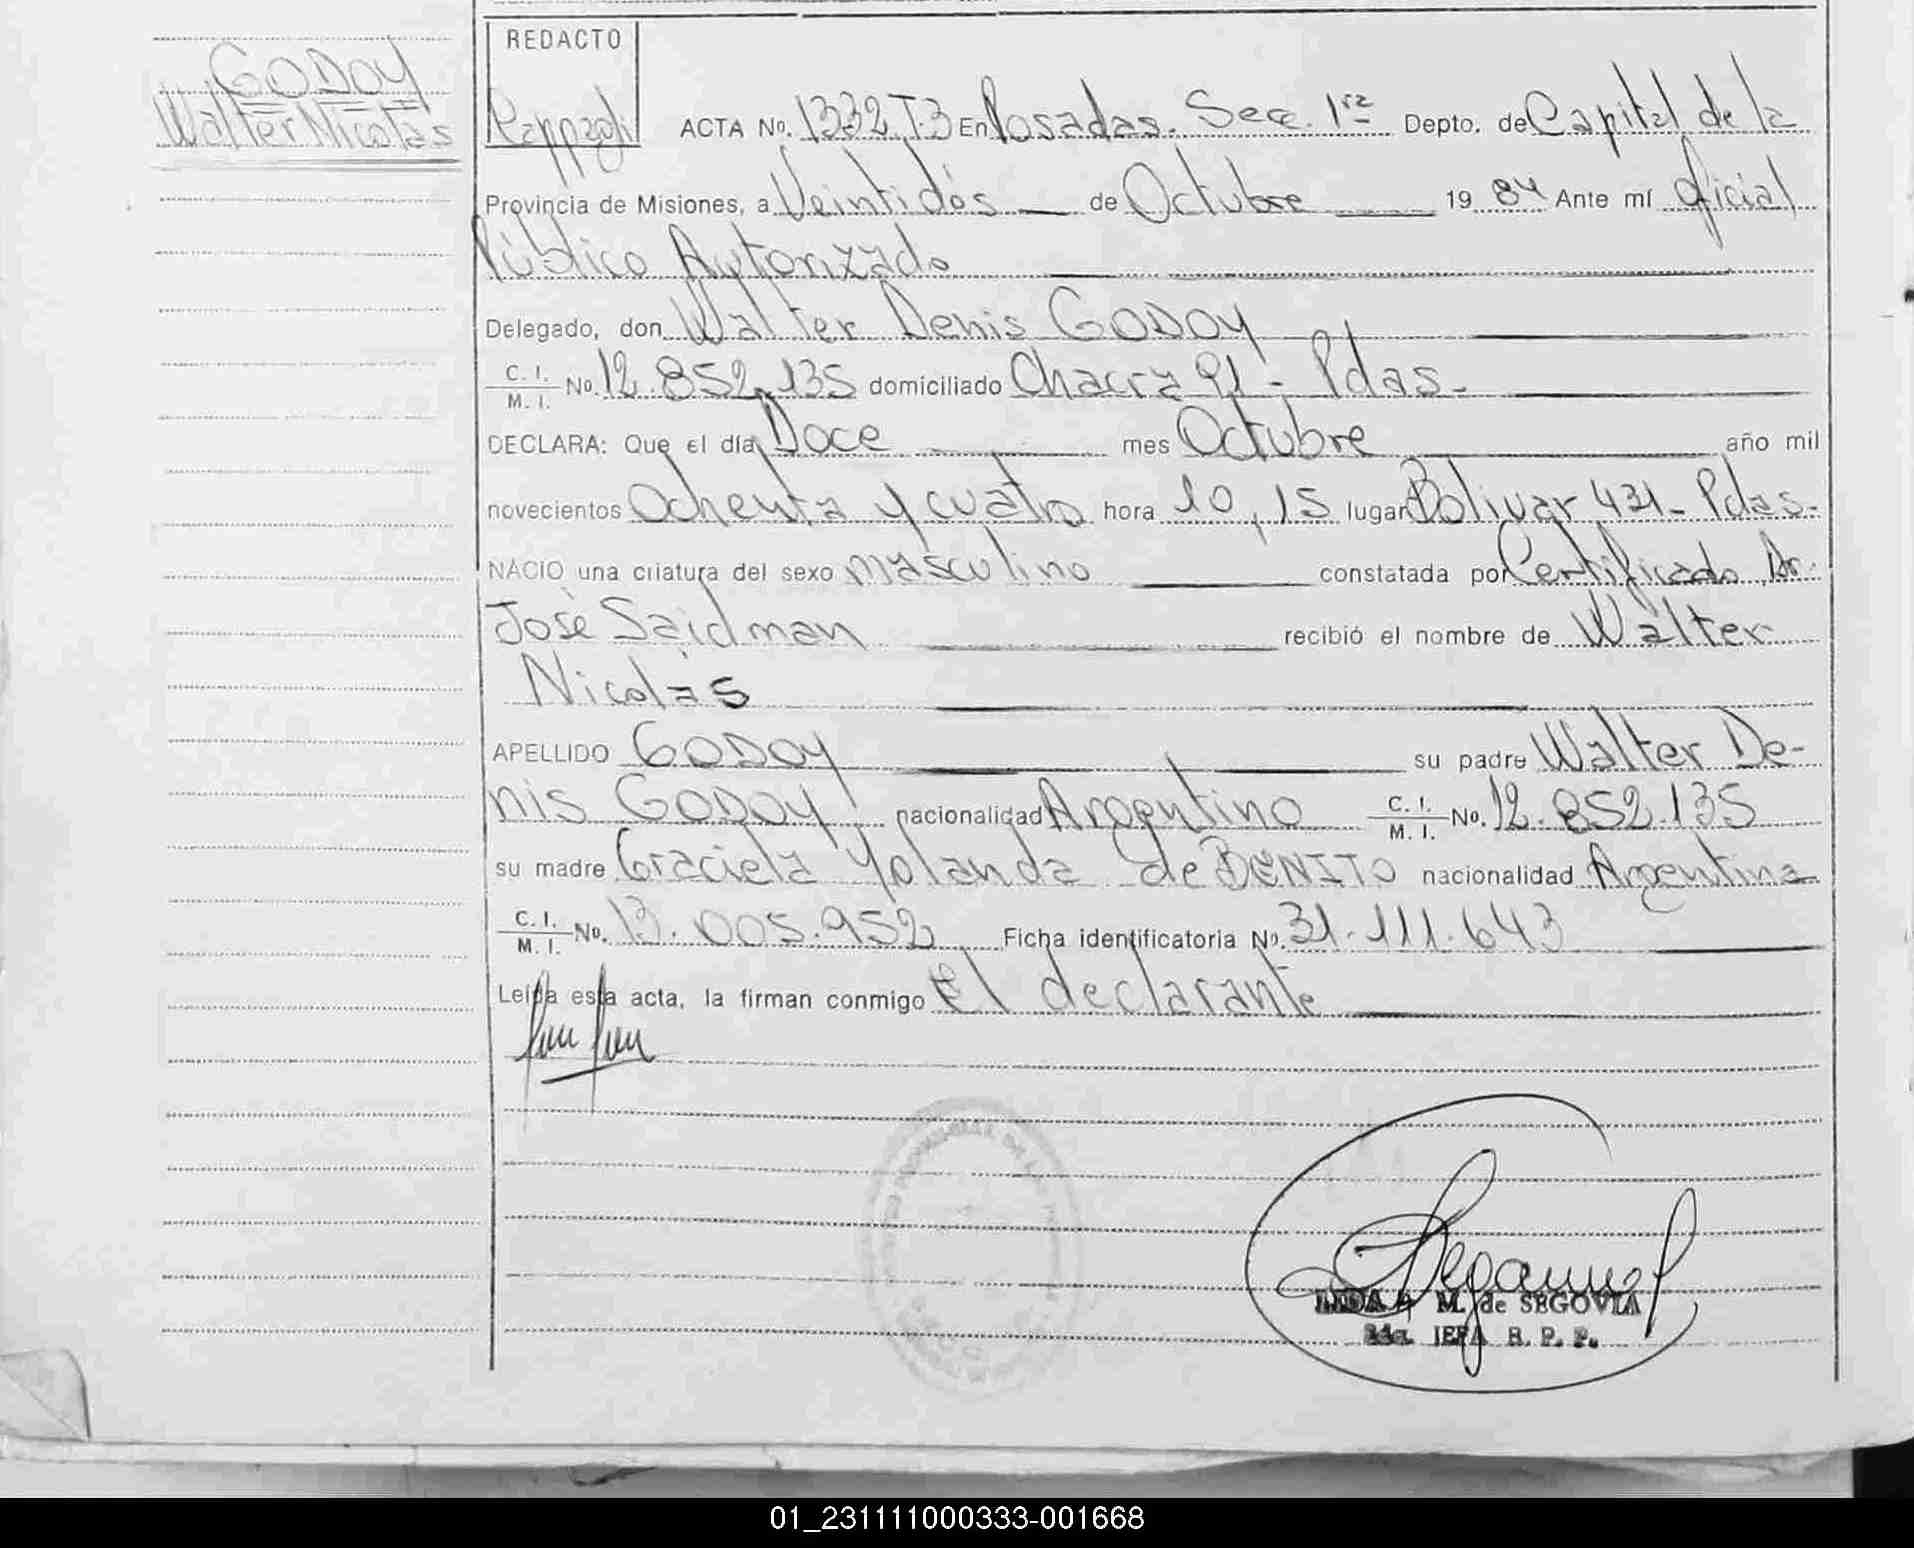 GODOY
Walter Nicolás
REDACTO
ACTA No. 1332 T.3 En Posadas. Secc. 1ra Depto. de Capital de la
Provincia de Misiones, a Veintidós de Octubre 19 84 Ante mí Oficial
Público Autorizado
Delegado, don Walter Denis GODOY
C. I. M. I. No. 12.852.135 domiciliado Chacra 91 - Pdas.
DECLARA: Que el día Doce mes Octubre año mil
novecientos Ochenta y cuatro hora 10,15 lugar Bolivar 431- Pdas.
NACIO una criatura del sexo masculino constatada por Certificado Dr.
José Saidman recibió el nombre de Walter
Nicolás
APELLIDO GODOY su padre Walter De-
nis GODOY nacionalidad Argentino C. I. M. I. No. 12.852.135
su madre Graciela Yolanda de BENITO nacionalidad Argentina
C. I. M. I. No. 13.005.952 Ficha identificatoria No. 31.111.643
Leída esta acta, la firman conmigo El declarante
M. de SEGOVIA
JEFA R. P. P.
01_231111000333-001668